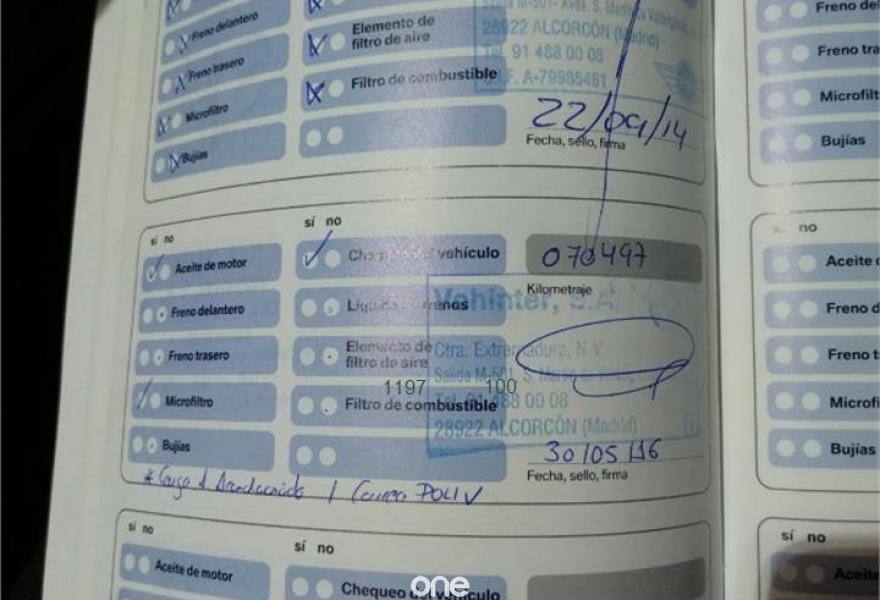 Freno delantero
Elemento de
filtro de aire
28922 ALCORCÓN (Madrid)
Tel. 91 488 00 08
C.I.F. A-79985461
Freno trasero
Filtro de combustible
Microfiltro
Bujías
22/09/14
Fecha, sello, firma
Freno del
Freno tra
Microfilt
Bujías
sí no
sí no
Aceite de motor
Chequeo del vehículo
070497
Kilometraje
Freno delantero
Líquido de frenos
Vehinter, S.A.
Freno trasero
Elemento de
filtro de aire
Ctra. Extremadura, N-V
Salida M-501, S. Martín de
1197 100
Microfiltro
Filtro de combustible
Tel. 91 488 00 08
28922 ALCORCÓN (Madrid)
Bujías
30/05/16
Fecha, sello, firma
POLI V
no
Aceite
Freno d
Freno t
Microfi
Bujías
sí no
sí no
Aceite de motor
Chequeo del vehículo
one
sí no
Aceite